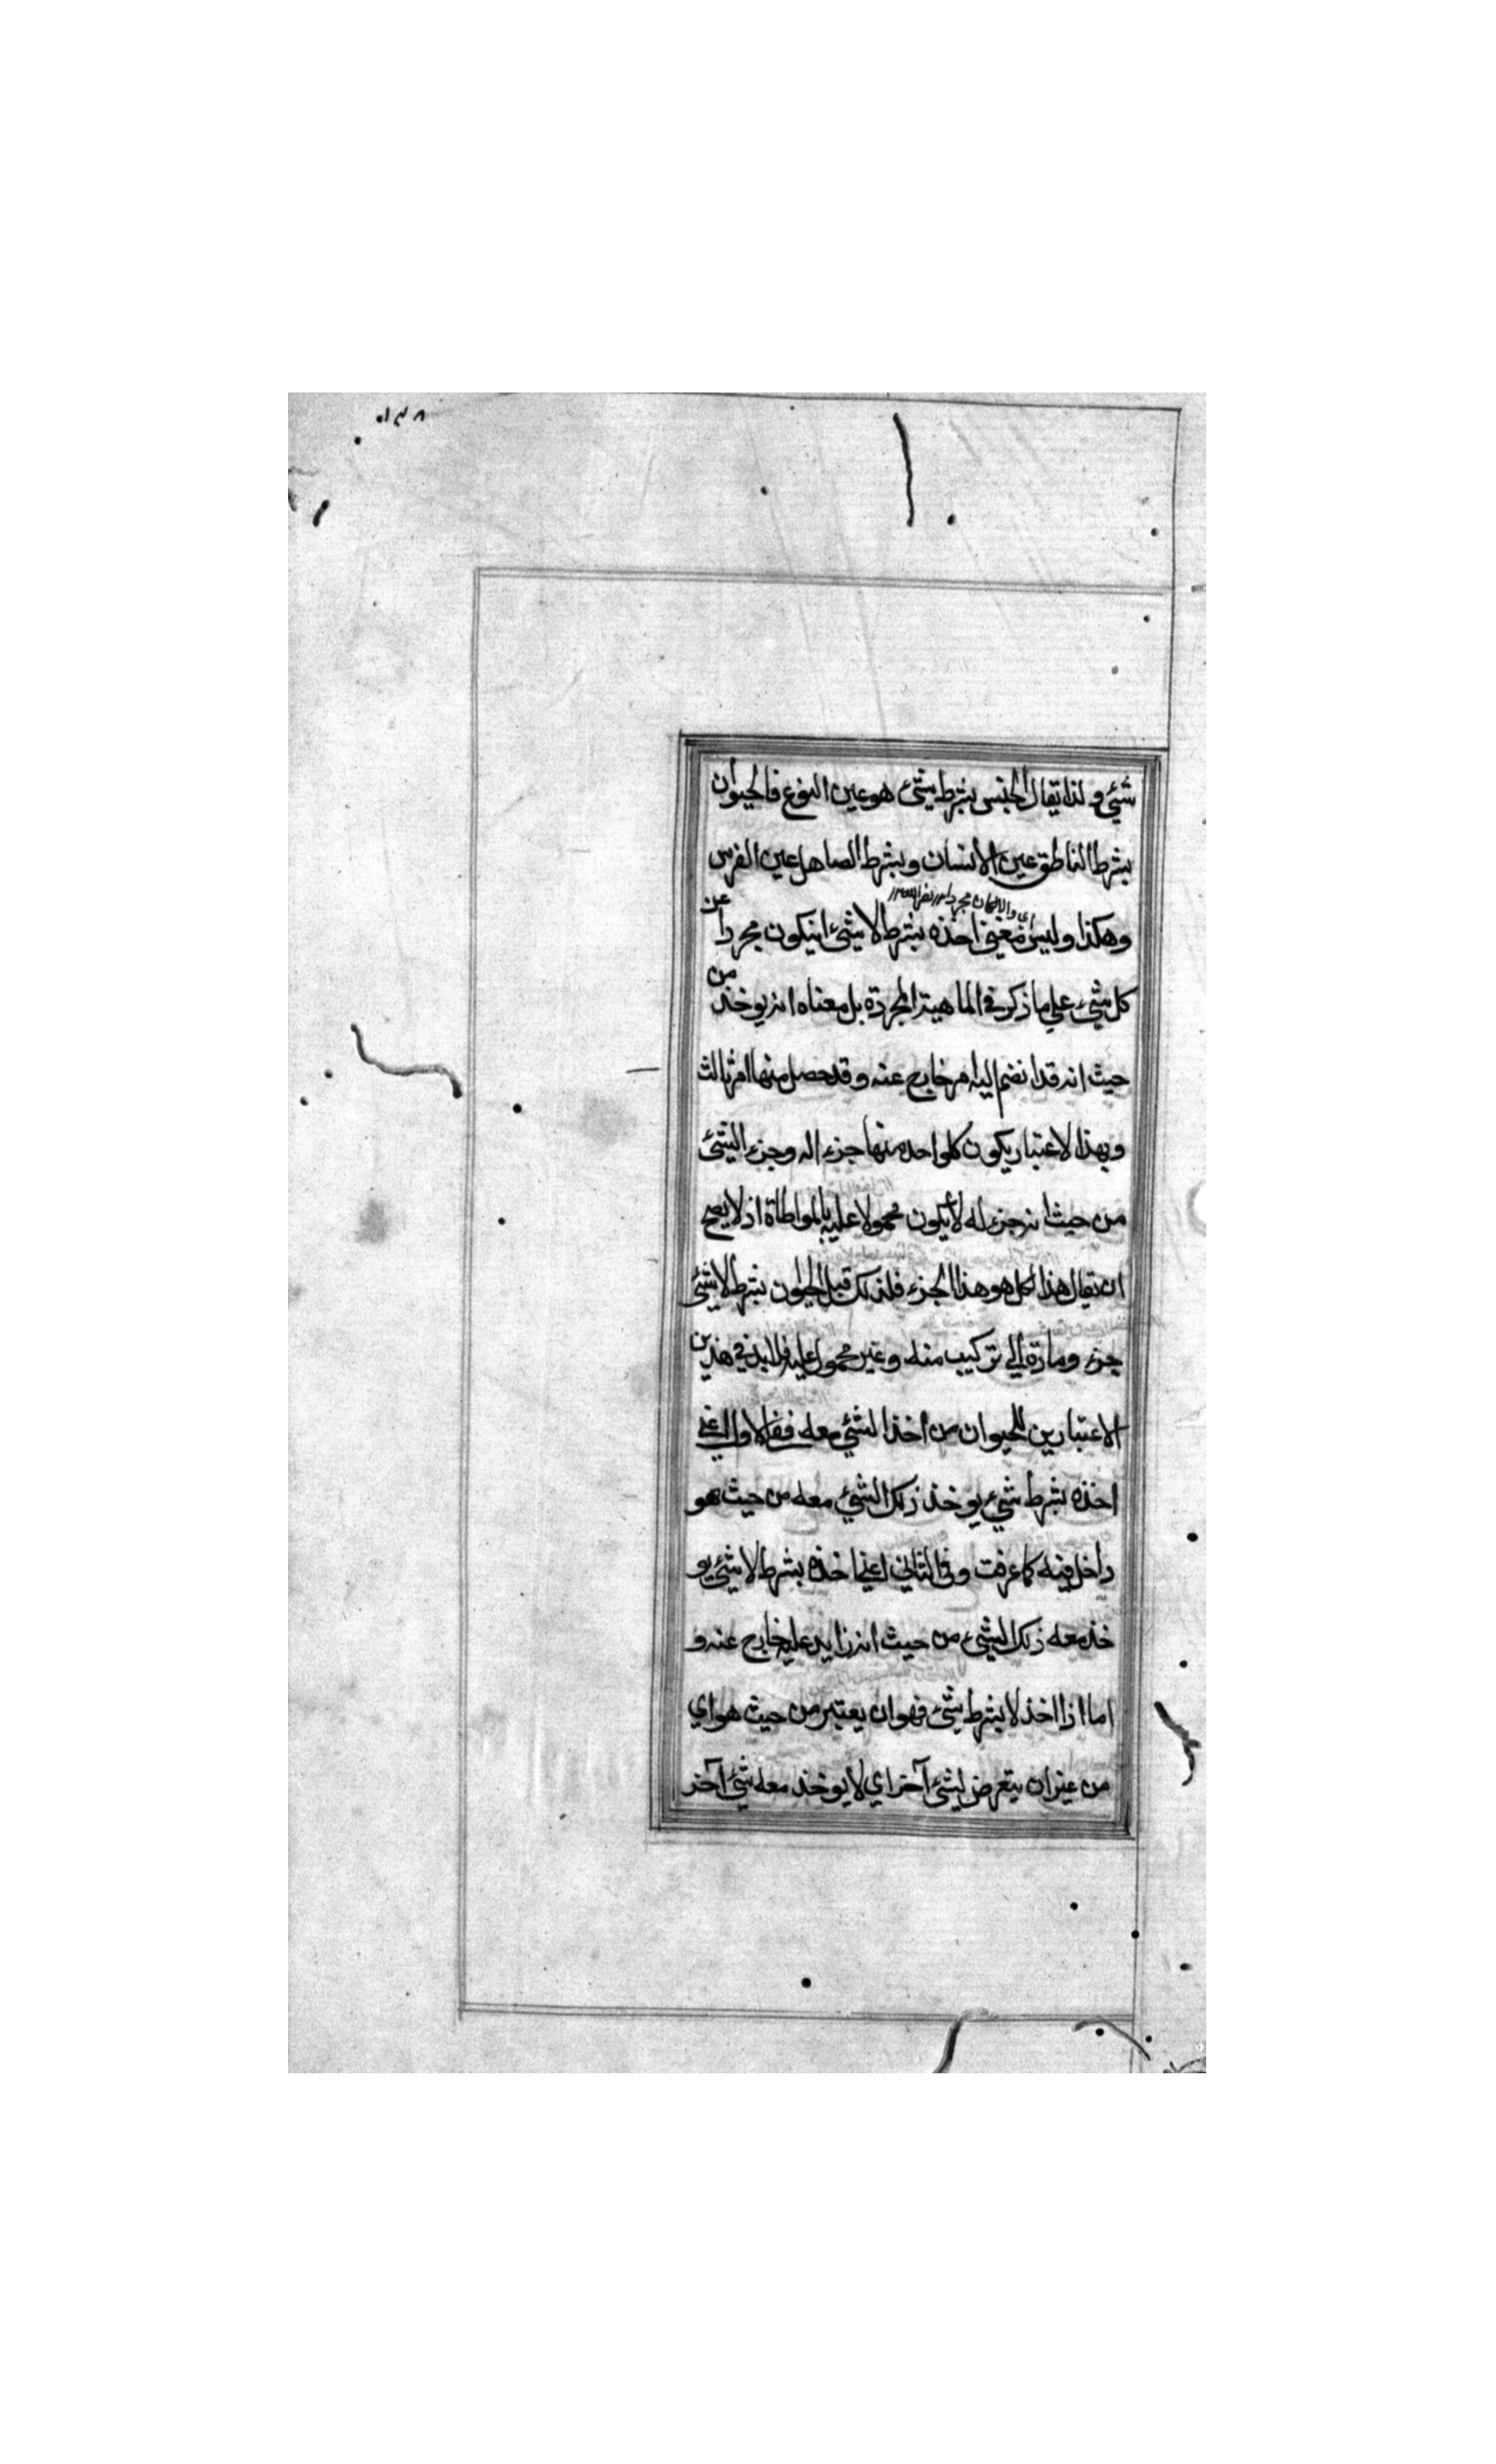 شيء و لذا يقال الجنس بشرط شيء هو عين النوع فالحيوان
بشرط الناطق عين الانسان وبشرط الصاهل عين الفرس
وهكذا وليس معنى اخذه بشرط لا شيء ان يكون مجردا عن
كل شيء على ما ذكر في الماهية المجردة بل معناه انه يوخذ من
حيث انه قد انضم اليه امر خارج عنه و قد حصل منهما امر ثالث
وبهذا لاعتبار يكون كلواحد منهما جزء اله وجزء الشيء
من حيث انه جزء له لا يكون محمولا عليه بالمواطاة اذ لا يصح
ان يقال هذا لكل هو هذا الجزء فلذلك قيل الحيوان بشرط لا شيء
جزء ومادة لي تركيب منه وغير محمول عليه فلا بد في هذين
الاعتبارين للحيوان من اخذ الشيء معه ففي الاول اعني
اخذه بشرط شيء يوخذ ذلك الشيء معه من حيث هو
داخل فيه كما عرفت وفي الثاني اعني اخذه بشرط لا شيء يو
خذ معه ذلك الشيء من حيث انه زايد عليه خارج عنه و
اما اذا اخذ لا بشرط شيء فهو ان يعتبر من حيث هو اي
من غير ان يتعرض لشيء آخر اي لا يوخذ معه شيء آخر